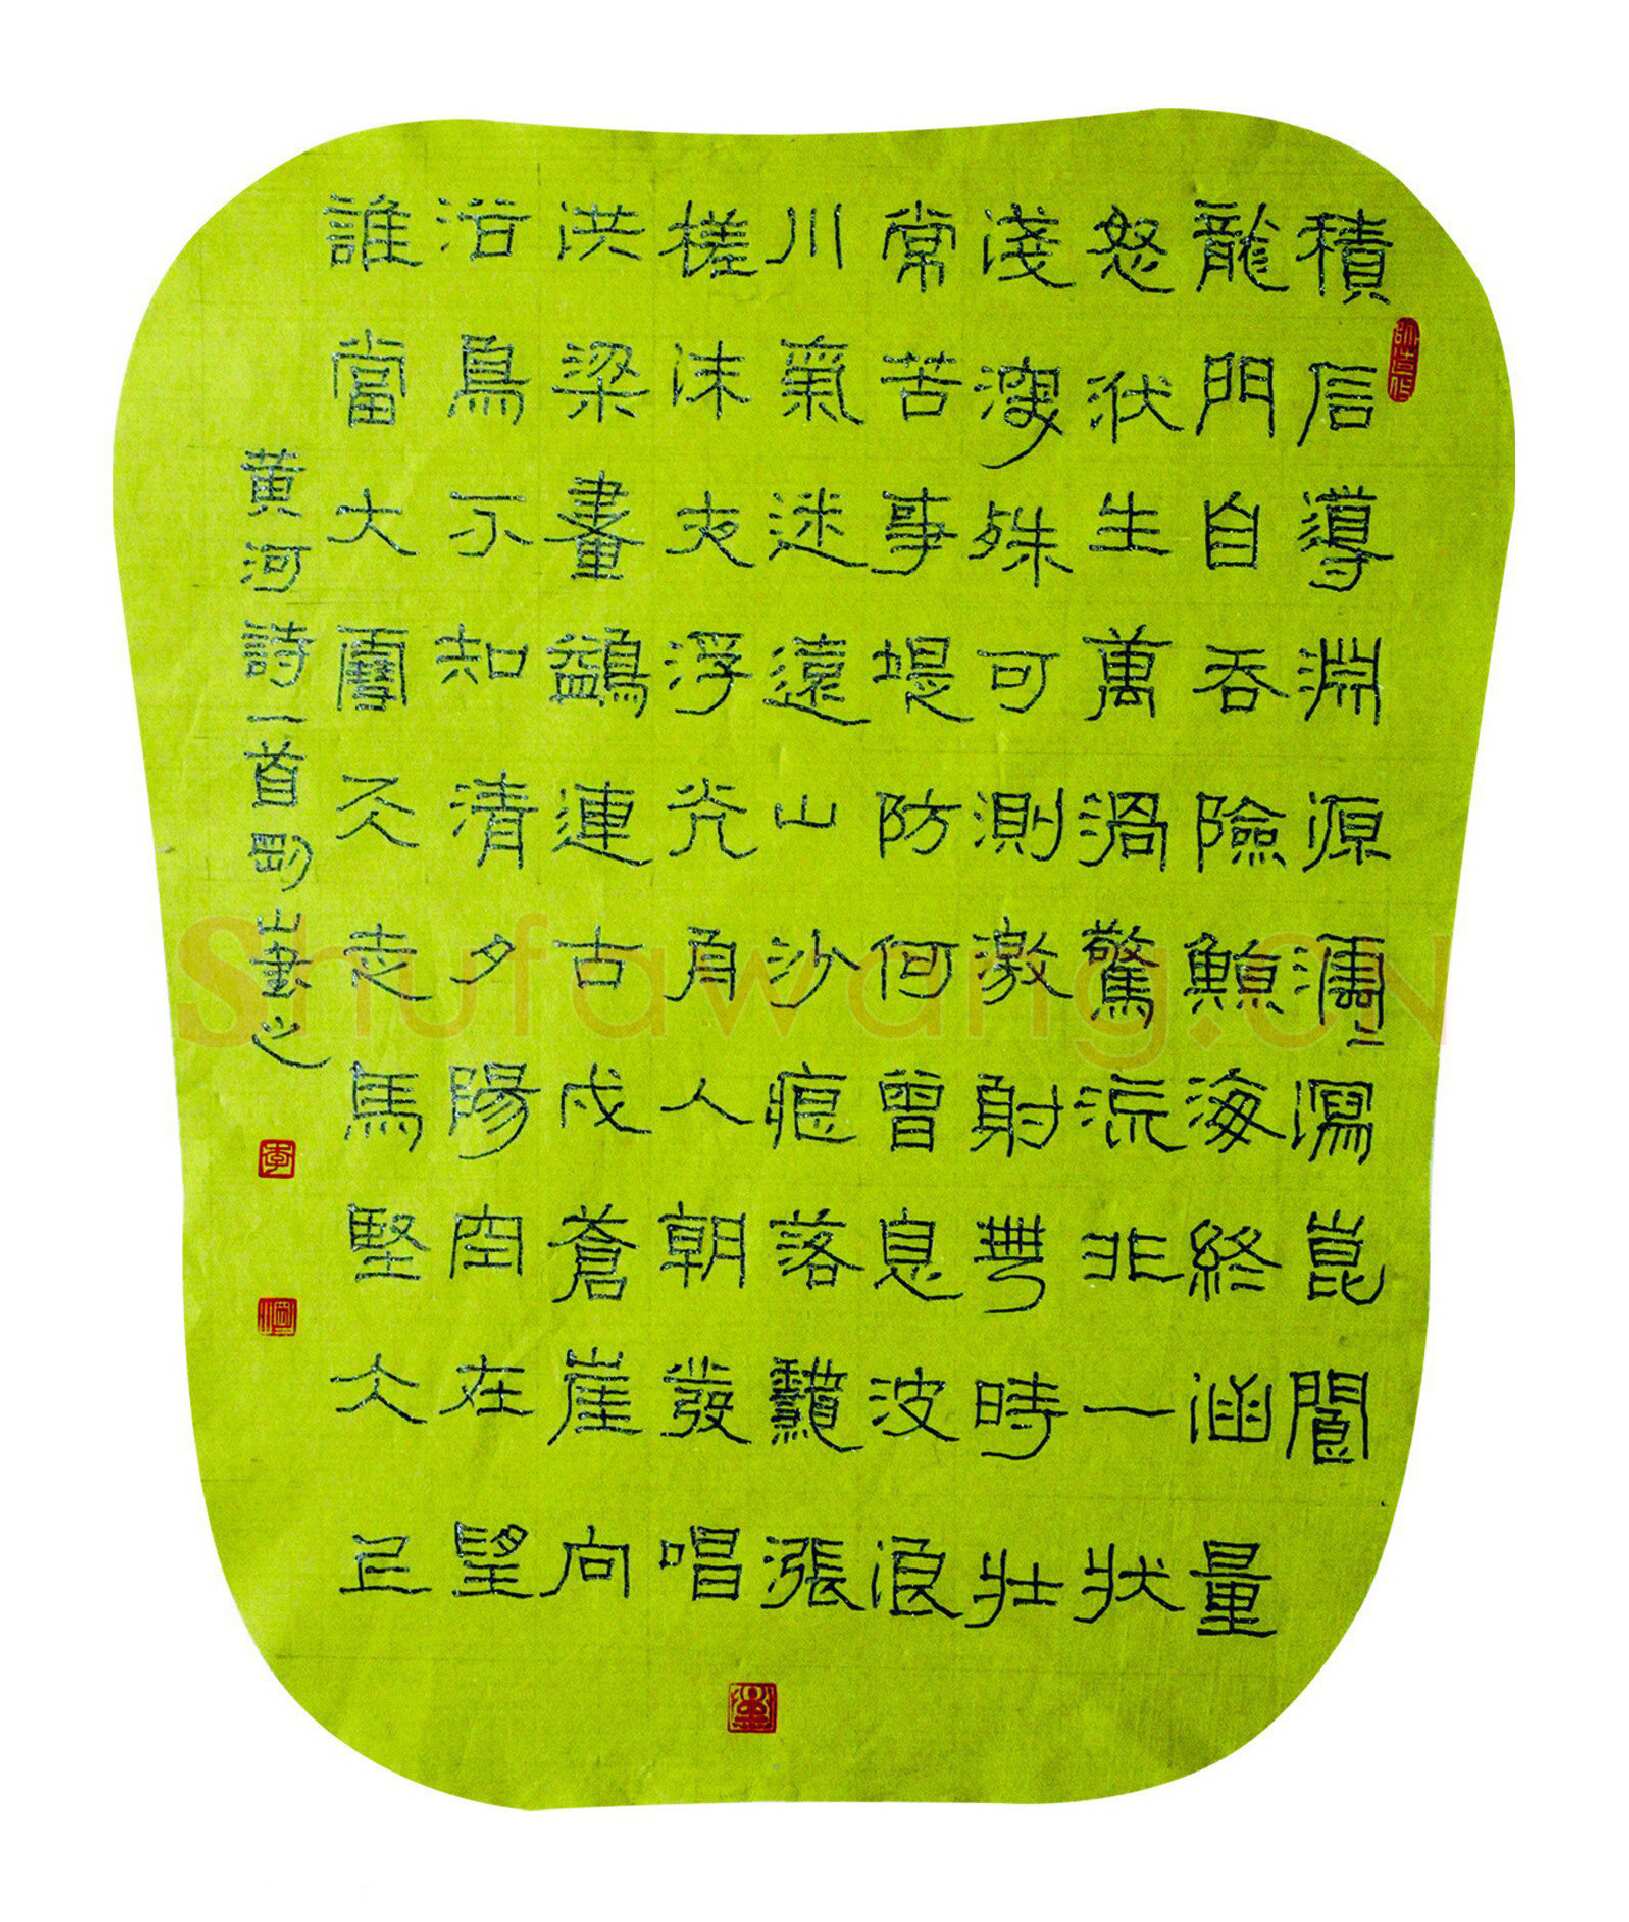 積石導淵源瀉崑閬
龍門自吞險鯨海終涵量
怒洑生萬渦驚流非一狀
淺深殊可測激射無時壯
常苦事堤防何曾息波浪
川氣迷遠山沙痕落漲
槎沫夜浮光舟人朝發唱
洪梁畫鷁連古戍蒼崖向
浴鳥不知清夕陽空在望
誰當大雪天走馬堅冰上
黃河詩一首剛山書之
Shufawang.CN